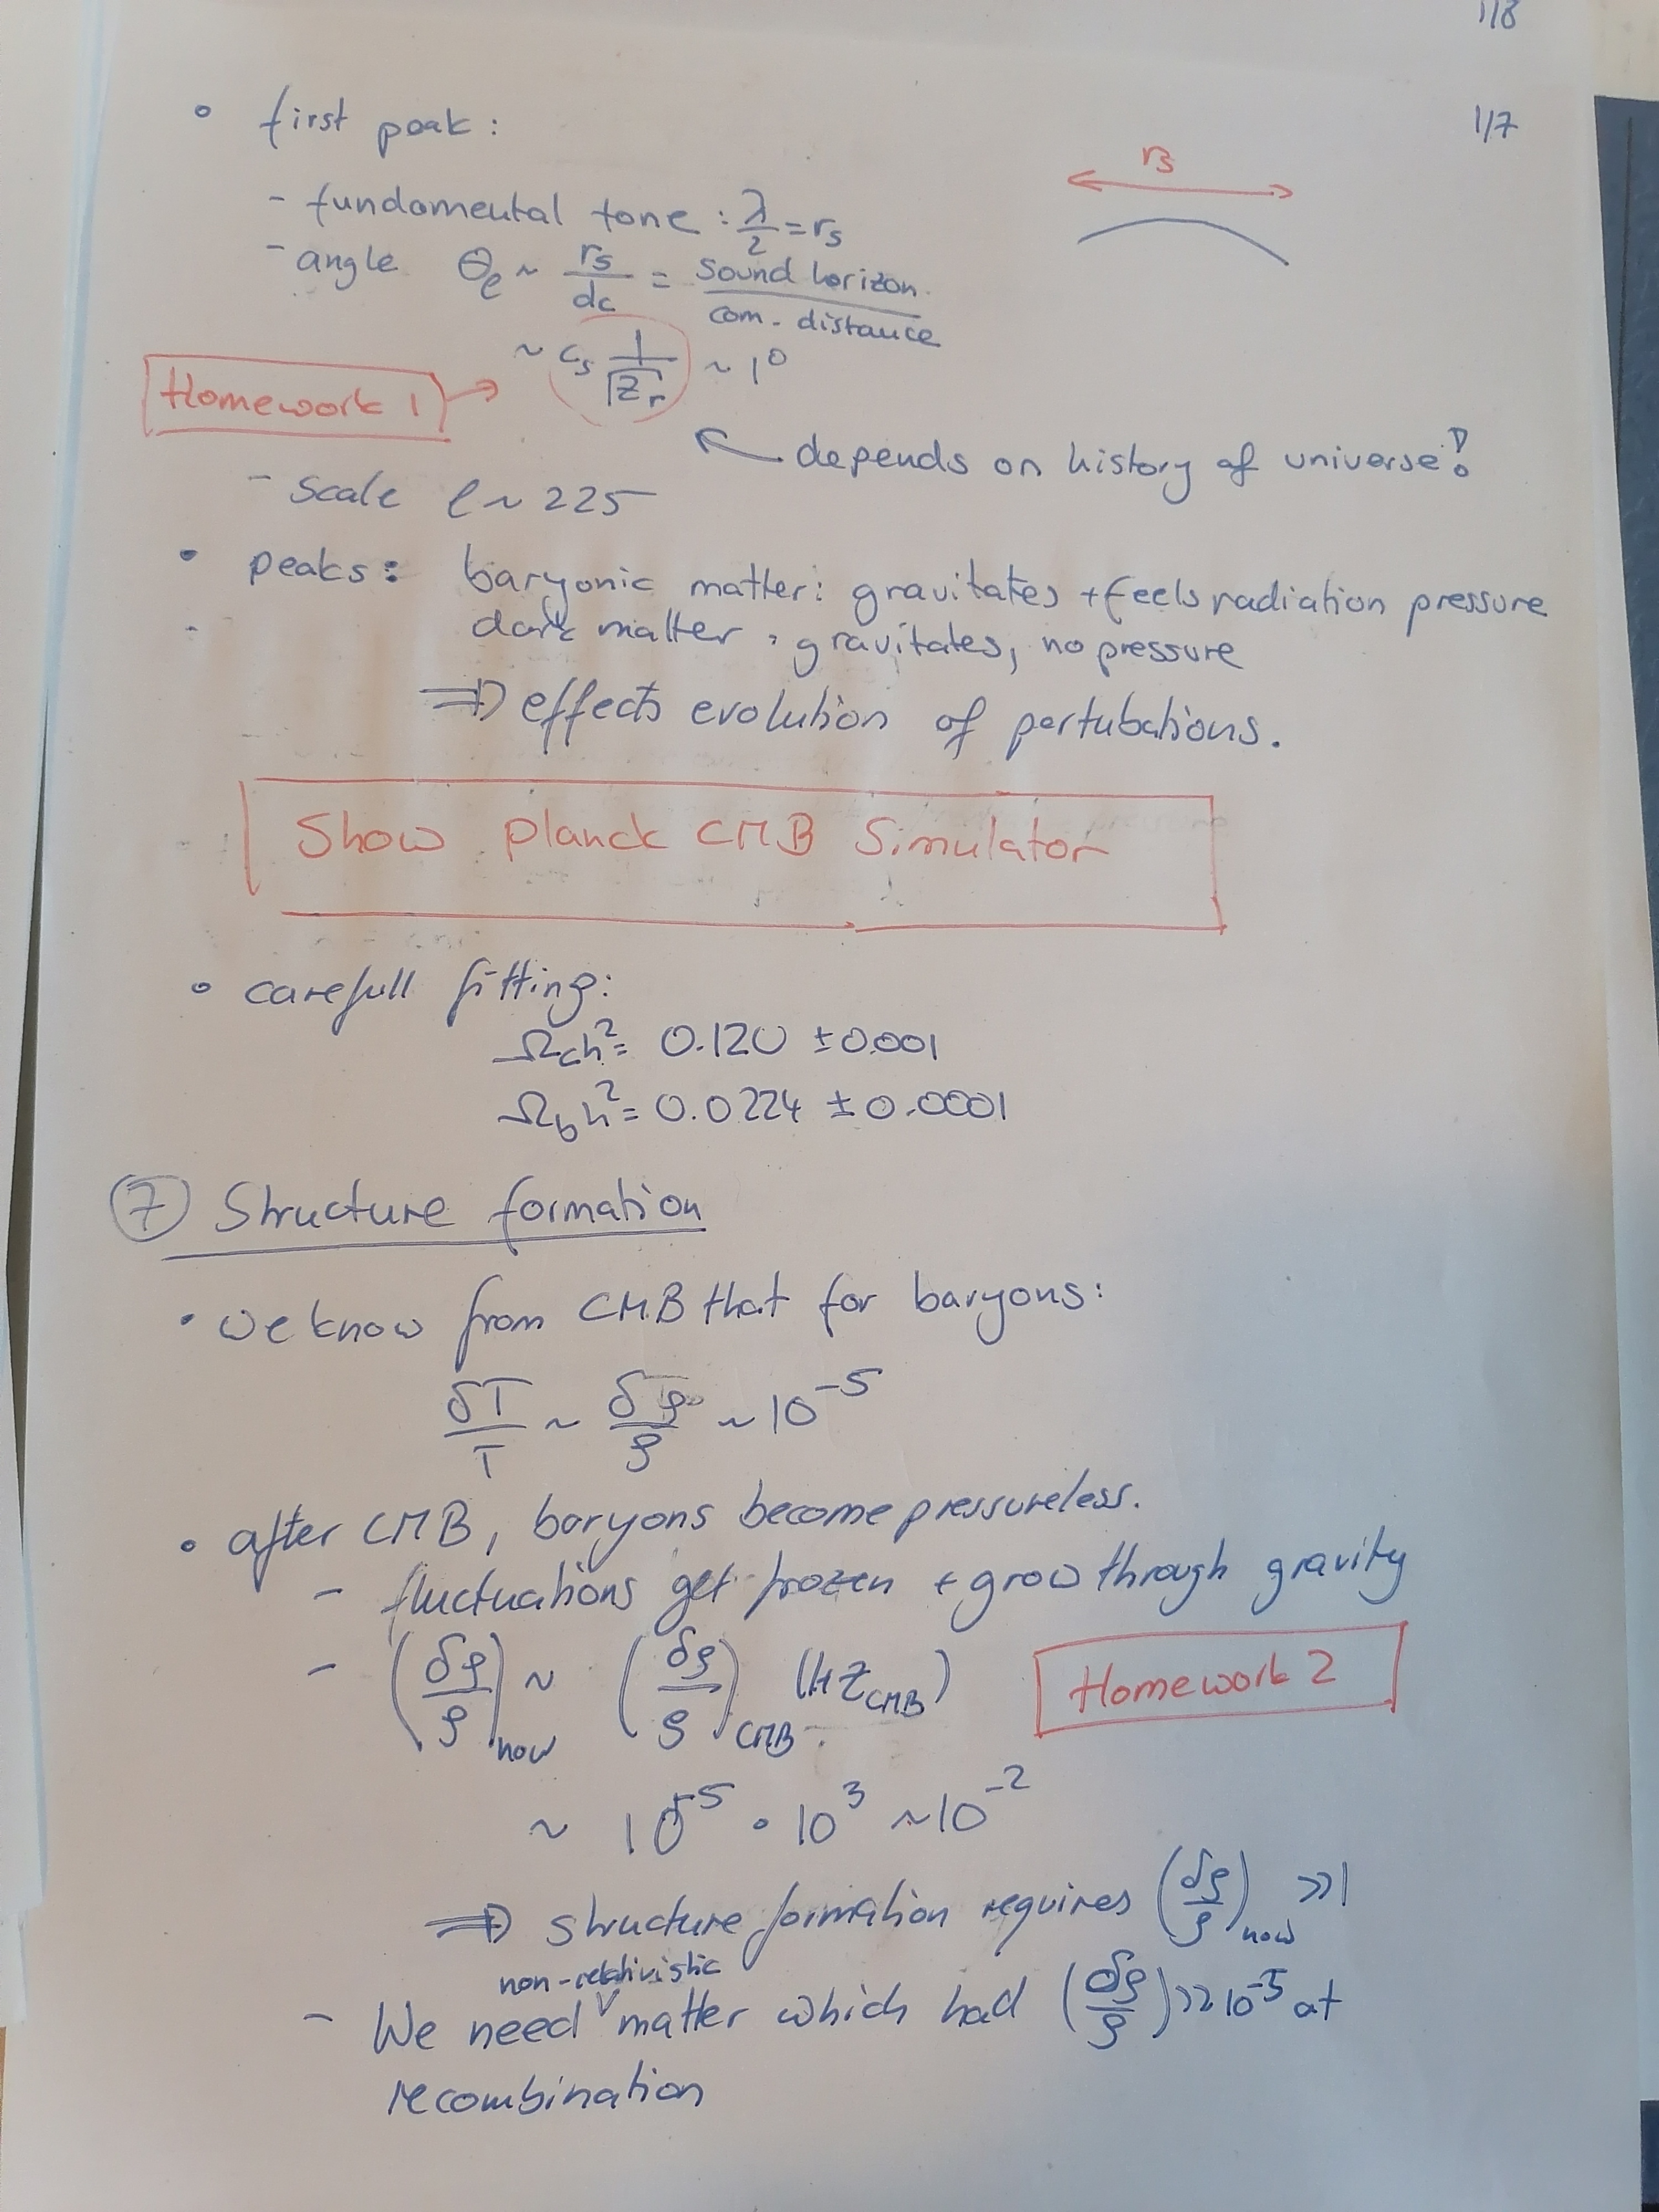 1/8
1/7
• first peak:
rs
- fundamental tone: λ/2 = rs
- angle θe ~ rs/dc = sound horizon/com. distance
~ cs 1/√zr ~ 1°
Homework 1 →
depends on history of universe!
- scale ℓ ~ 225
• peaks: baryonic matter: gravitates + feels radiation pressure
dark matter: gravitates, no pressure
⇒ effects evolution of pertubations.
Show Planck CMB Simulator
• carefull fitting:
Ωch² = 0.120 ± 0.001
Ωbh² = 0.0224 ± 0.0001
⑦ Structure formation
• we know from CMB that for baryons:
δT/T ~ δρ/ρ ~ 10⁻⁵
• after CMB, baryons become pressureless.
- fluctuations get frozen + grow through gravity
- (δρ/ρ)now ~ (δρ/ρ)CMB (1+zCMB)
Homework 2
~ 10⁻⁵ • 10³ ~ 10⁻²
⇒ structure formation requires (δρ/ρ)now >> 1
non-relativistic
- We need matter which had (δρ/ρ) >> 10⁻⁵ at
recombination